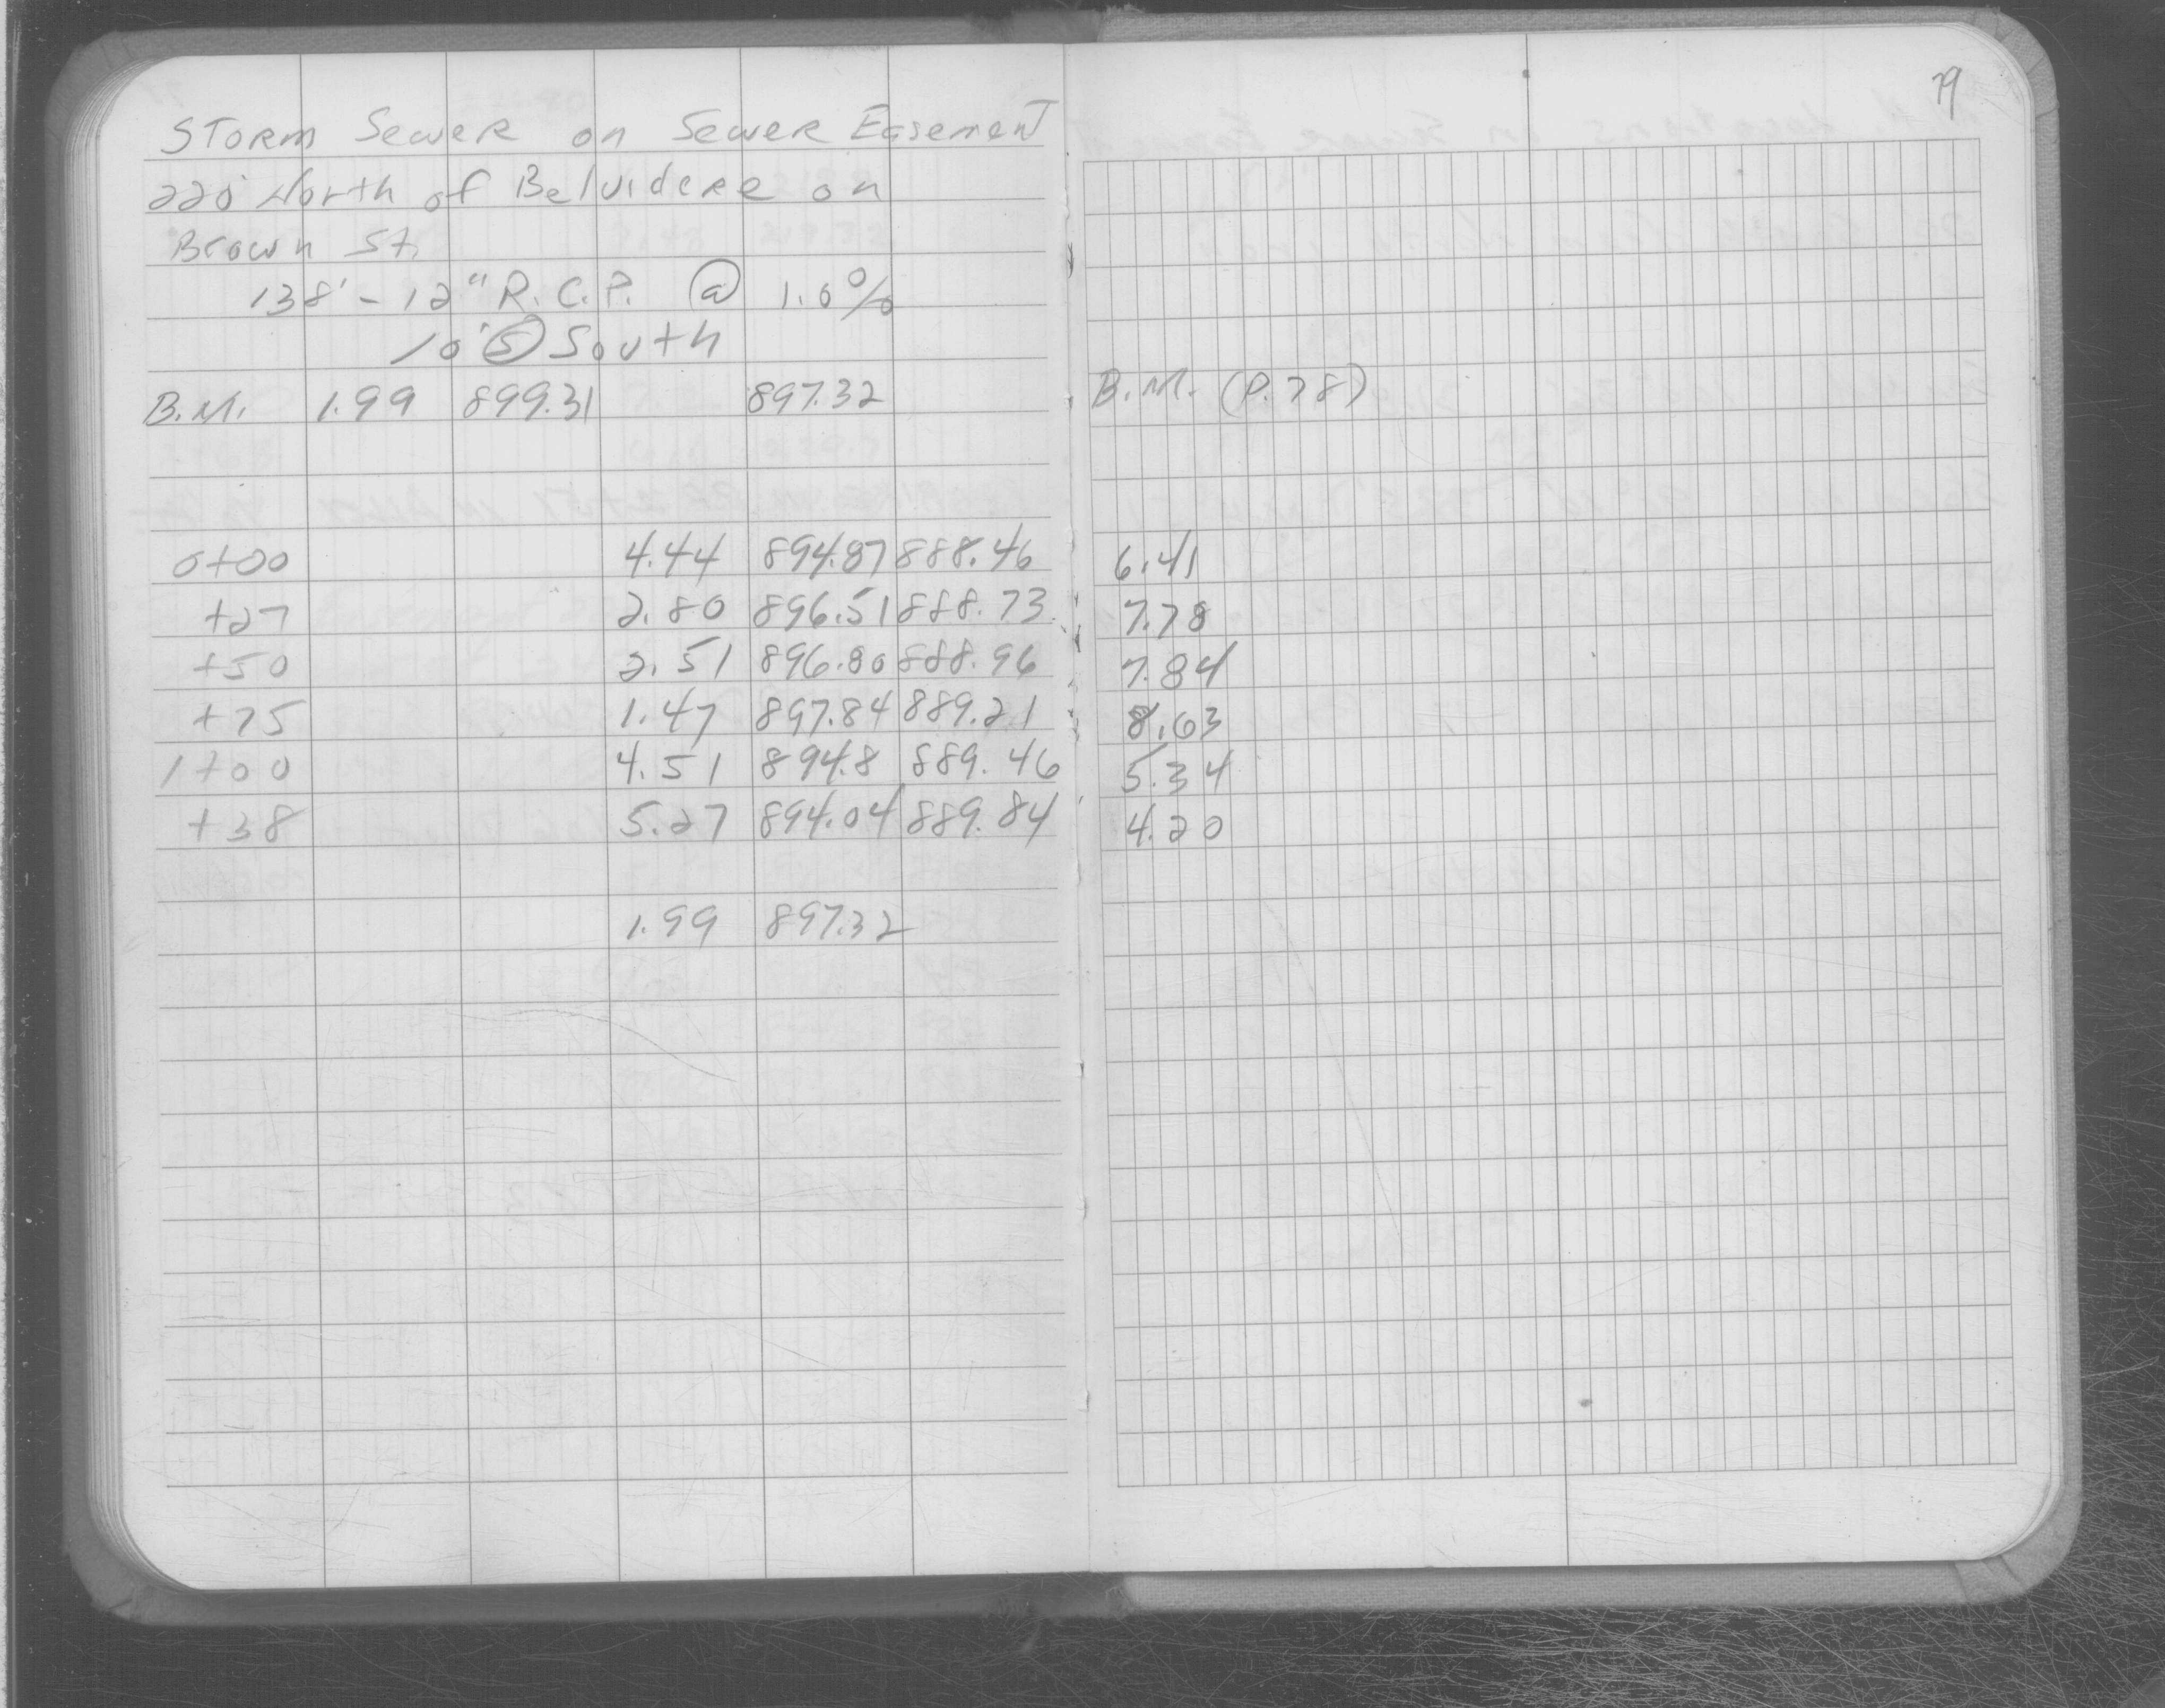 79
Storm Sewer on Sewer Easement
220' North of Belvidere on
Brown St.
138' - 12" R.C.P. @ 1.0%
10' (S) South
B.M. 1.99 899.31 897.32 B.M. (P. 78)
0+00 4.44 894.87 888.46 6.41
+27 2.80 896.51 888.73 7.78
+50 2.51 896.80 888.96 7.84
+75 1.47 897.84 889.21 8.63
1+00 4.51 894.8 889.46 5.34
+38 5.27 894.04 889.84 4.20
1.99 897.32